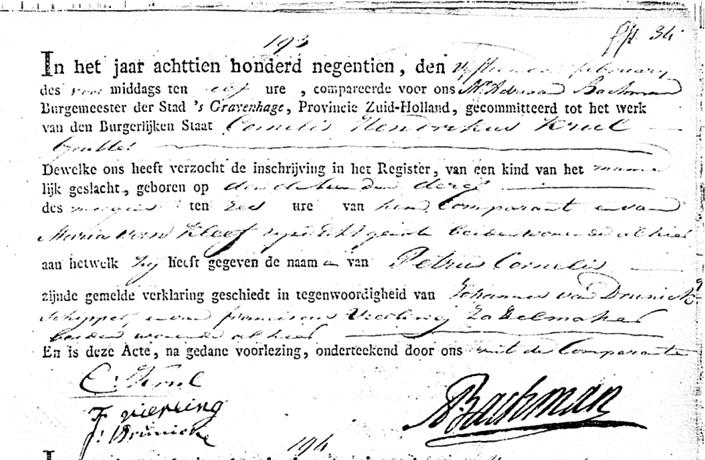 193
34
In het jaar achttien honderd negentien, den vyftienden february
des voor middags ten elf ure, compareerde voor ons Mr Adriaan Bachman
Burgemeester der Stad 's Gravenhage, Provincie Zuid-Holland, gecommitteerd tot het werk
van den Burgerlijken Staat Cornelis Hendrikus Krul
Dewelke ons heeft verzocht de inschrijving in het Register, van een kind van het manne
lijk geslacht, geboren op den derzer
des morgens ten zes ure van hem Comparant en van
Maria van Kleef zyne echtgenote beiden wonende alhier
aan hetwelk hy heeft gegeven de naamen van Petrus Cornelis
zijnde gemelde verklaring geschiedt in tegenwoordigheid van Johannes van Drunick
Schipper en van franciscus Vierling Zadelmaker
beiden wonende alhier
En is deze Acte, na gedane voorlezing, onderteekend door ons met de Comparanten
C: Krul
F vierling
J: Drunicke
A Bachman
194